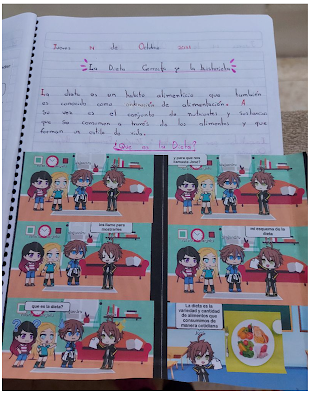 Jueves de Octubre
La Dieta Concepto y la historieta
La dieta es un habito alimenticio que también
es conocido como de alimentación. A
su vez es el conjunto de nutrientes y sustancias
que se consumen a través de los alimentos y que
forman un estilo de vida.
¿Qué es la Dieta?
y para que nos
los llame para
mostrarles
mi esquema de la
dieta
que es la dieta?
La dieta es la
variedad y cantidad
de alimentos que
consumimos de
manera cotidiana